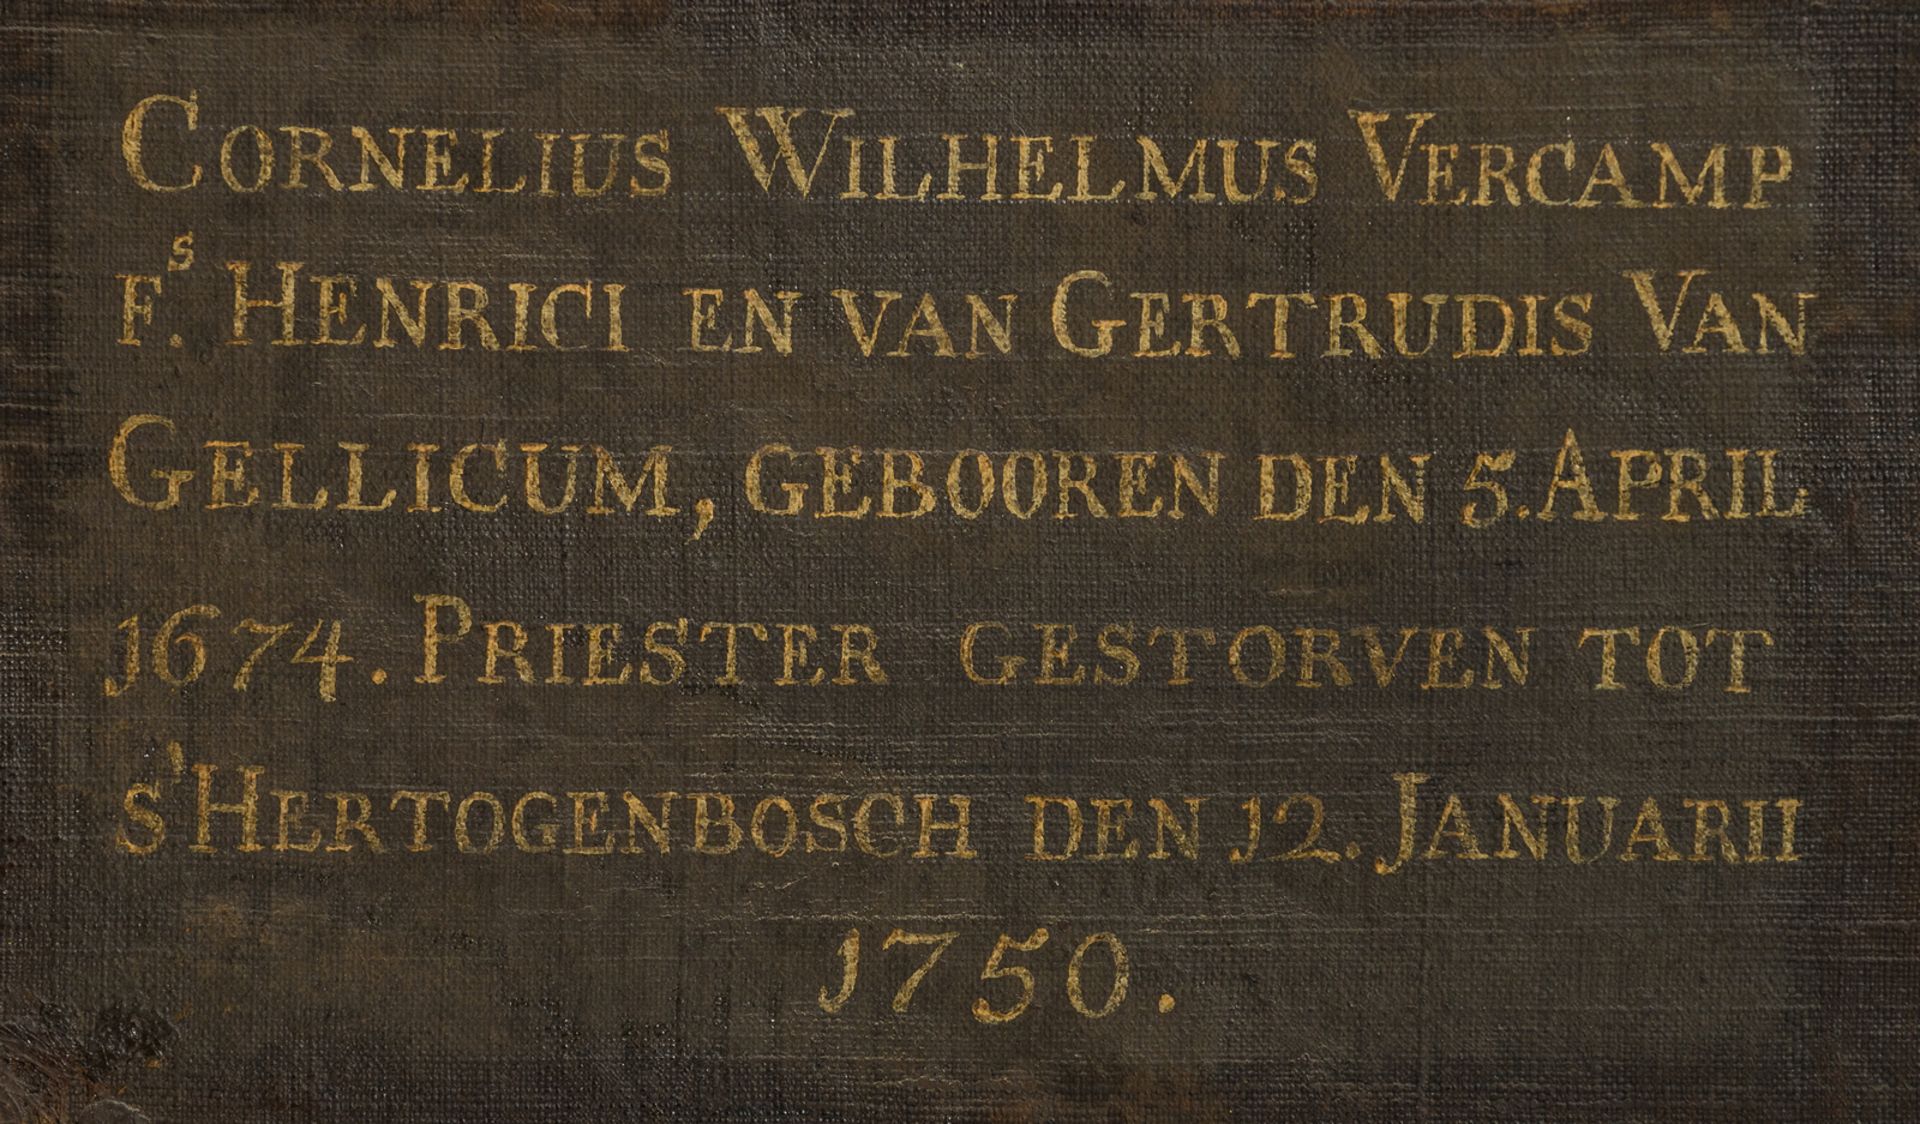 Cornelius Wilhelmus Vercamp
Fˢ. Henrici en van Gertrudis Van
Gellicum, gebooren den 5. April
1674. Priester gestorven tot
s'Hertogenbosch den 12. Januarii
1750.